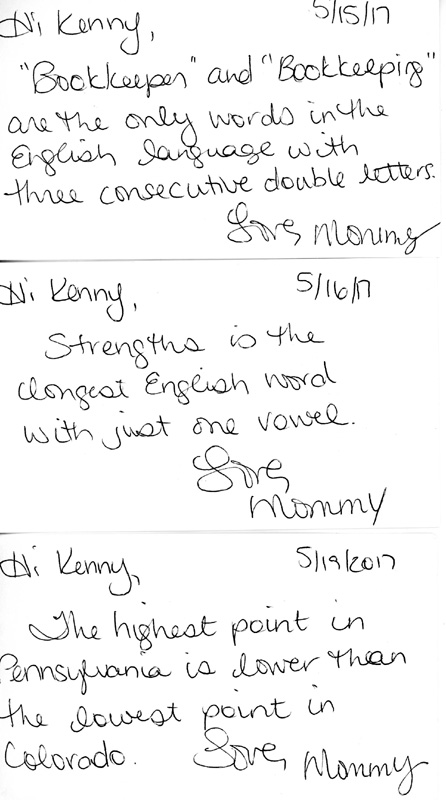 Hi Kenny,
5/15/17
"Bookkeeper" and "Bookkeeping"
are the only words in the
English language with
three consecutive double letters.
Love, Mommy
Hi Kenny,
5/16/17
Strengths is the
longest English word
with just one vowel.
Love,
Mommy
Hi Kenny,
5/19/2017
The highest point in
Pennsylvania is lower than
the lowest point in
Colorado.
Love, Mommy